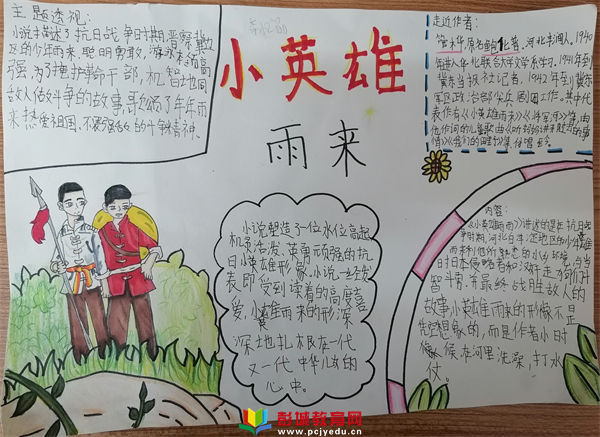 主题透视:
小说描述了抗日战争时期,晋察冀边
区的少年雨来,聪明勇敢,游泳本领高
强,为了掩护革命干部,机智地同
敌人做斗争的故事,歌颂了少年雨
来热爱祖国,不畏强敌的斗争精神。
小英雄
雨来
走近作者:
管桦,原名鲍化普,河北丰润人。1940
年进入华北联合大学文学系学习。1941年到
冀东当报社记者,1942年到冀东
军区政治部尖兵剧团工作。其中代
表作有《小英雄雨来》《将军河》等,由
他作词的儿童歌曲《听妈妈讲那过去的事
情》《我们的田野》等
小说塑造了一位水位高超
机灵活泼,英勇顽强的抗
日小英雄形象,小说一经发
表即受到读者的高度喜
爱,小英雄雨来的形深
深地扎根在一代
又一代中华儿女的
心中。
内容:
《小英雄雨来》讲述的是在抗日战
争时期,河北白洋淀地区的少年
雨来和他的
日本侵略者和汉奸走狗们斗
智斗勇,并最终战胜敌人的
故事小英雄雨来的形像不是
想象的,而是作者小时
候在河里洗澡,打水
仗。
彭城教育网
www.pcjyedu.cn